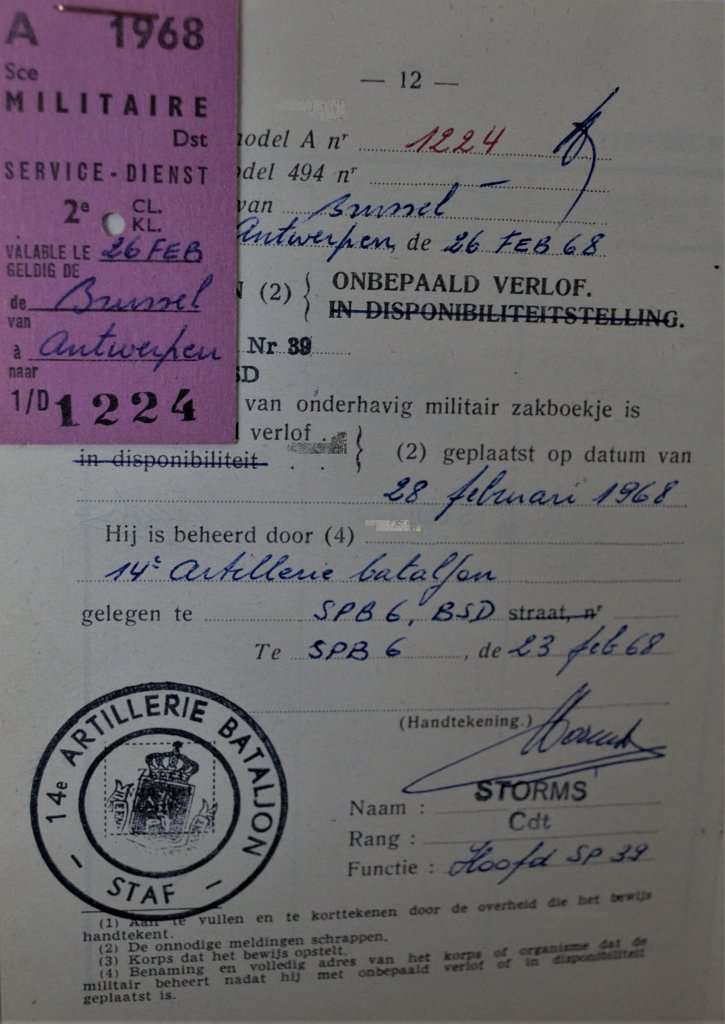 A 1968
Sce
MILITAIRE
Dst
SERVICE-DIENST
2e CL.
KL.
VALABLE LE 26 FEB
GELDIG DE
de Brussel
van
à Antwerpen
naar
1/D 1224
— 12 —
model A nr 1224
del 494 nr —
van Brussel
Antwerpen, de 26 FEB 68
N (2) { ONBEPAALD VERLOF.
IN DISPONIBILITEITSTELLING.
Nr 39
SD
van onderhavig militair zakboekje is
verlof
in disponibiliteit } (2) geplaatst op datum van
28 februari 1968
Hij is beheerd door (4)
14e Artillerie bataljon
gelegen te SPB 6, BSD straat, nr
Te SPB 6, de 23 feb 68
(Handtekening.)
STORMS
Naam :
Cdt
Rang :
Functie : Hoofd SP 39
14e ARTILLERIE BATALJON
— STAF —
(1) Aan te vullen en te korttekenen door de overheid die het bewijs
handtekent.
(2) De onnodige meldingen schrappen.
(3) Korps dat het bewijs opstelt.
(4) Benaming en volledig adres van het korps of organisme dat de
militair beheert nadat hij met onbepaald verlof of in disponibiliteit
geplaatst is.